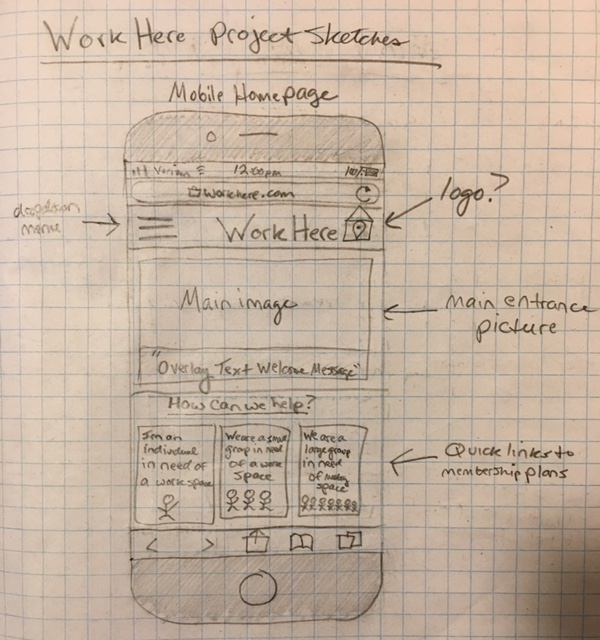 Work Here Project Sketches
Mobile Homepage
Verizon 12:00pm 100%
workhere.com
logo?
dropdown menu
Work Here
Main image
main entrance
picture
"Overlay Text Welcome Message"
How can we help?
I'm an
individual
in need of
a work space
We are a small
group in need
of a work
space
We are a
large group
in need
of
space
Quick links to
membership plans